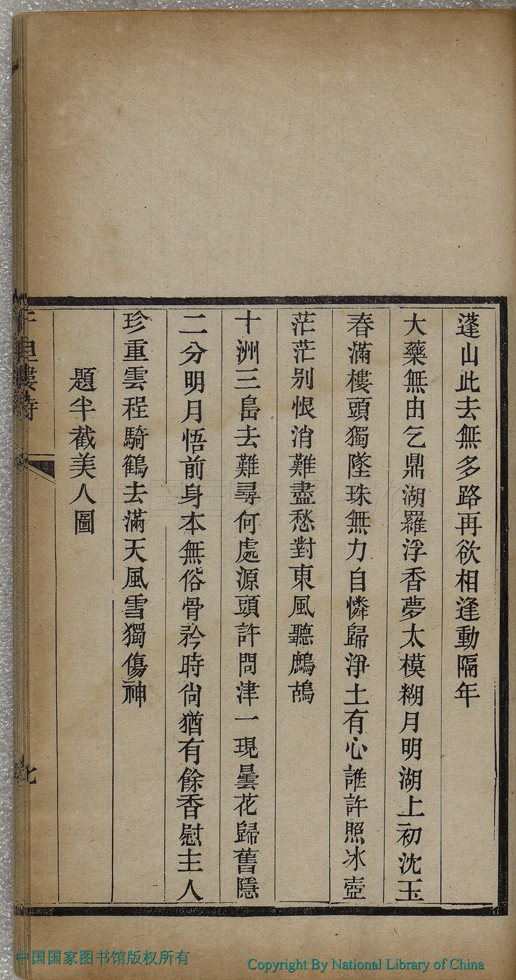 蓬山此去無多路再欲相逢動隔年
大藥無由乞鼎湖羅浮香夢太模糊月明湖上初沈玉
春滿樓頭獨墜珠無力自憐歸淨土有心誰許照冰壺
茫茫別恨消難盡愁對東風聽鷓鴣
十洲三島去難尋何處源頭許問津一現曇花歸舊隱
二分明月悟前身本無俗骨矜時尙猶有餘香慰主人
珍重雲程騎鶴去滿天風雪獨傷神
題半截美人圖
樓詩
中国国家图书馆版权所有
Copyright By National Library of China